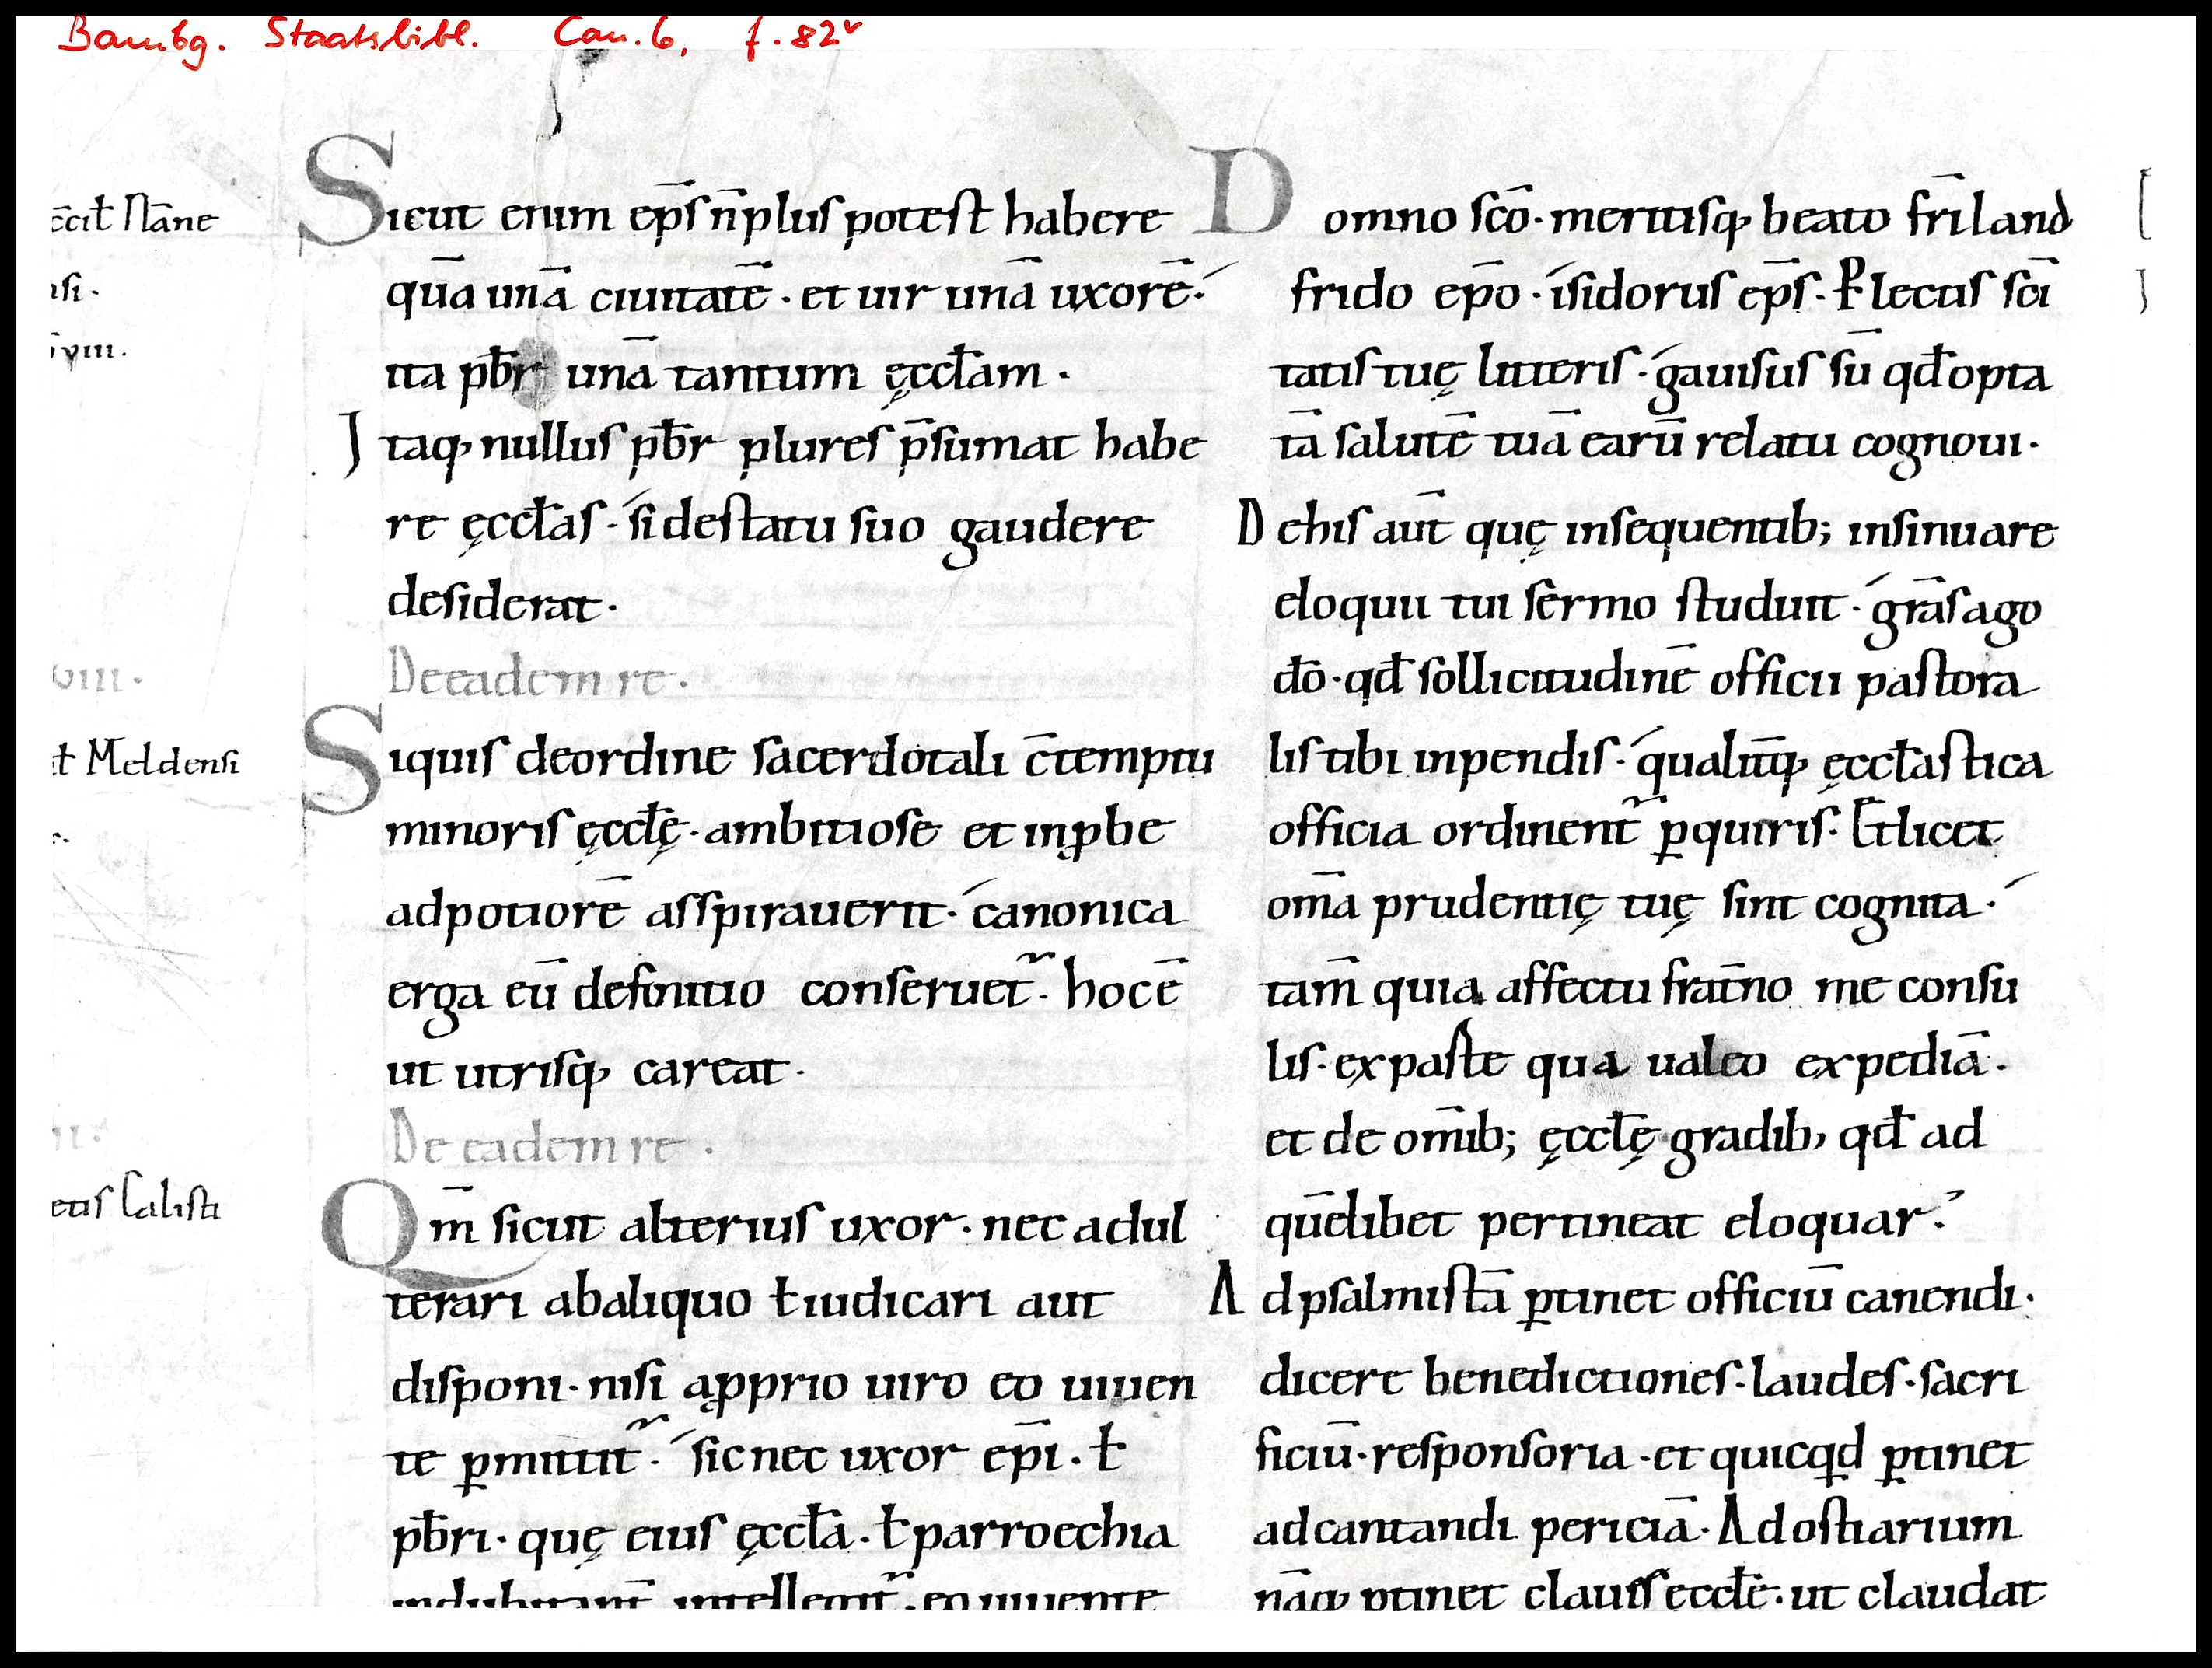 Bambg. Staatsbibl. Can. 6, f. 82v
c̄cił Nāne
nsi.
viii.
viii.
ł Meldensi
ii.
etis Calisti
Sicut enim ep̄s n̄ plus potest habere
quā unā ciuitatē · et uir unā uxorē ·
ita pb̄r unā tantum ęccłam ·
Itaq; nullus pb̄r plures p̄sumat habe
re ęccłas · si destatu suo gaudere
desiderat ·
De eadem re ·
Siquis deordine sacerdotali c̄temptu
minoris ęccłę · ambitiose et inꝓbe
adpotiorē asspirauerit · canonica
erga eū definitio conseruet̃ · hoc ē
ut utrisq; careat ·
De eadem re ·
Qm̄ sicut alterius uxor · nec adul
terari abaliquo ł iudicari aut
disponi · nisi aꝓprio uiro eo uiuen
te ꝑmittit̃ · sic nec uxor ep̄i · ł
pb̄ri · quę eius ęccła · ł parroechia
indubitant̄ intellegit̃ · eo uiuente
Domno sc̄o · meritisq; beato fr̄i land
frido ep̄o · isidorus ep̄s · P̄lectis sc̄i
tatis tuę litteris · gauisus sū qđ opta
tā salutē tuā earū relatu cognoui ·
Dehis aut̄ quę insequentib; insinuare
eloquii tui sermo studuit · gr̄as ago
dō · qđ sollicitudinē officii pastora
lis tibi inpendis · qualit̄q; ęccłastica
officia ordinent̃ ꝑquiris · Et licet
om̄a prudentię tuę sint cognita ·
tam̄ quia affectu frat̄no me consu
lis · expaste qua ualeo expediā ·
et de om̄ib; ęccłę gradib; qđ ad
quēlibet pertineat eloquar ·
Adpsalmistā ꝑtinet officiū canendi ·
dicere benedictiones · laudes · sacri
ficiū · responsoria · et quicqd ꝑtinet
adcantandi periciā · Adostiarium
nāq; ꝑtinet clauiſ eccłe · ut claudat